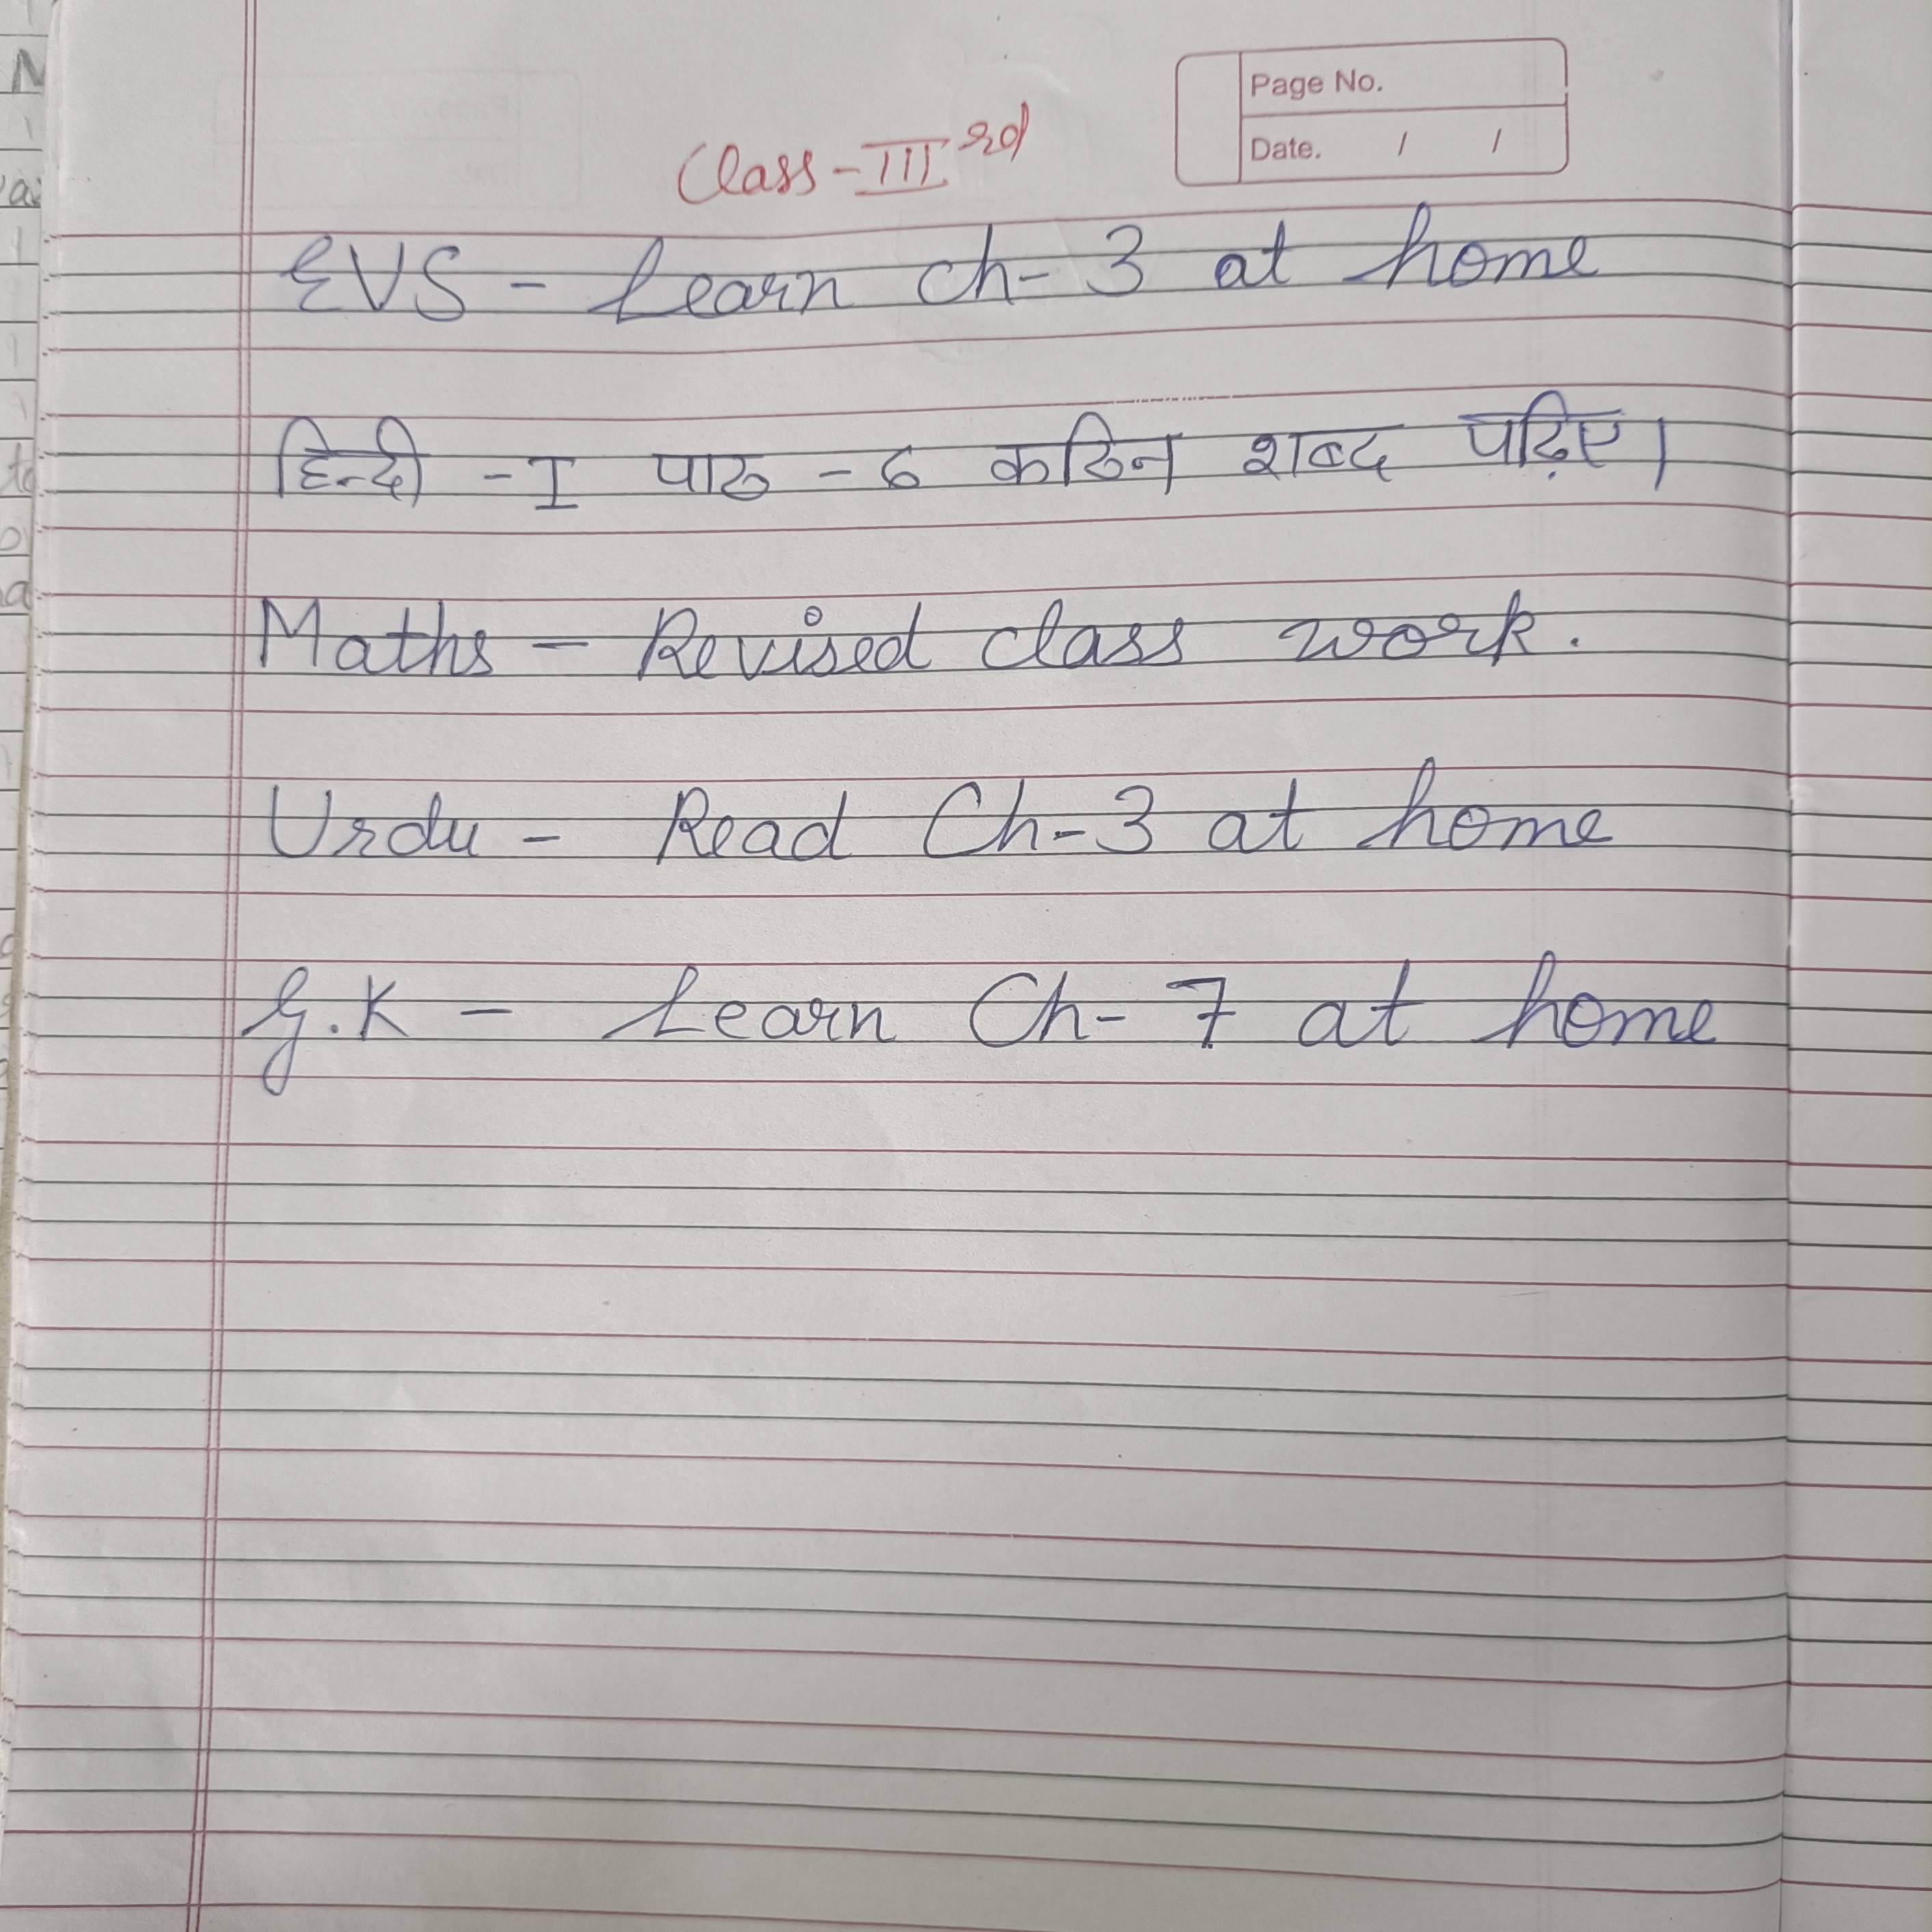 Page No.
Date. / /
Class-III rd
EVS - Learn ch-3 at home
हिन्दी -I पाठ - 6 कठिन शब्द पढ़िए।
Maths - Revised class work.
Urdu - Read Ch-3 at home
G.K - Learn Ch-7 at home